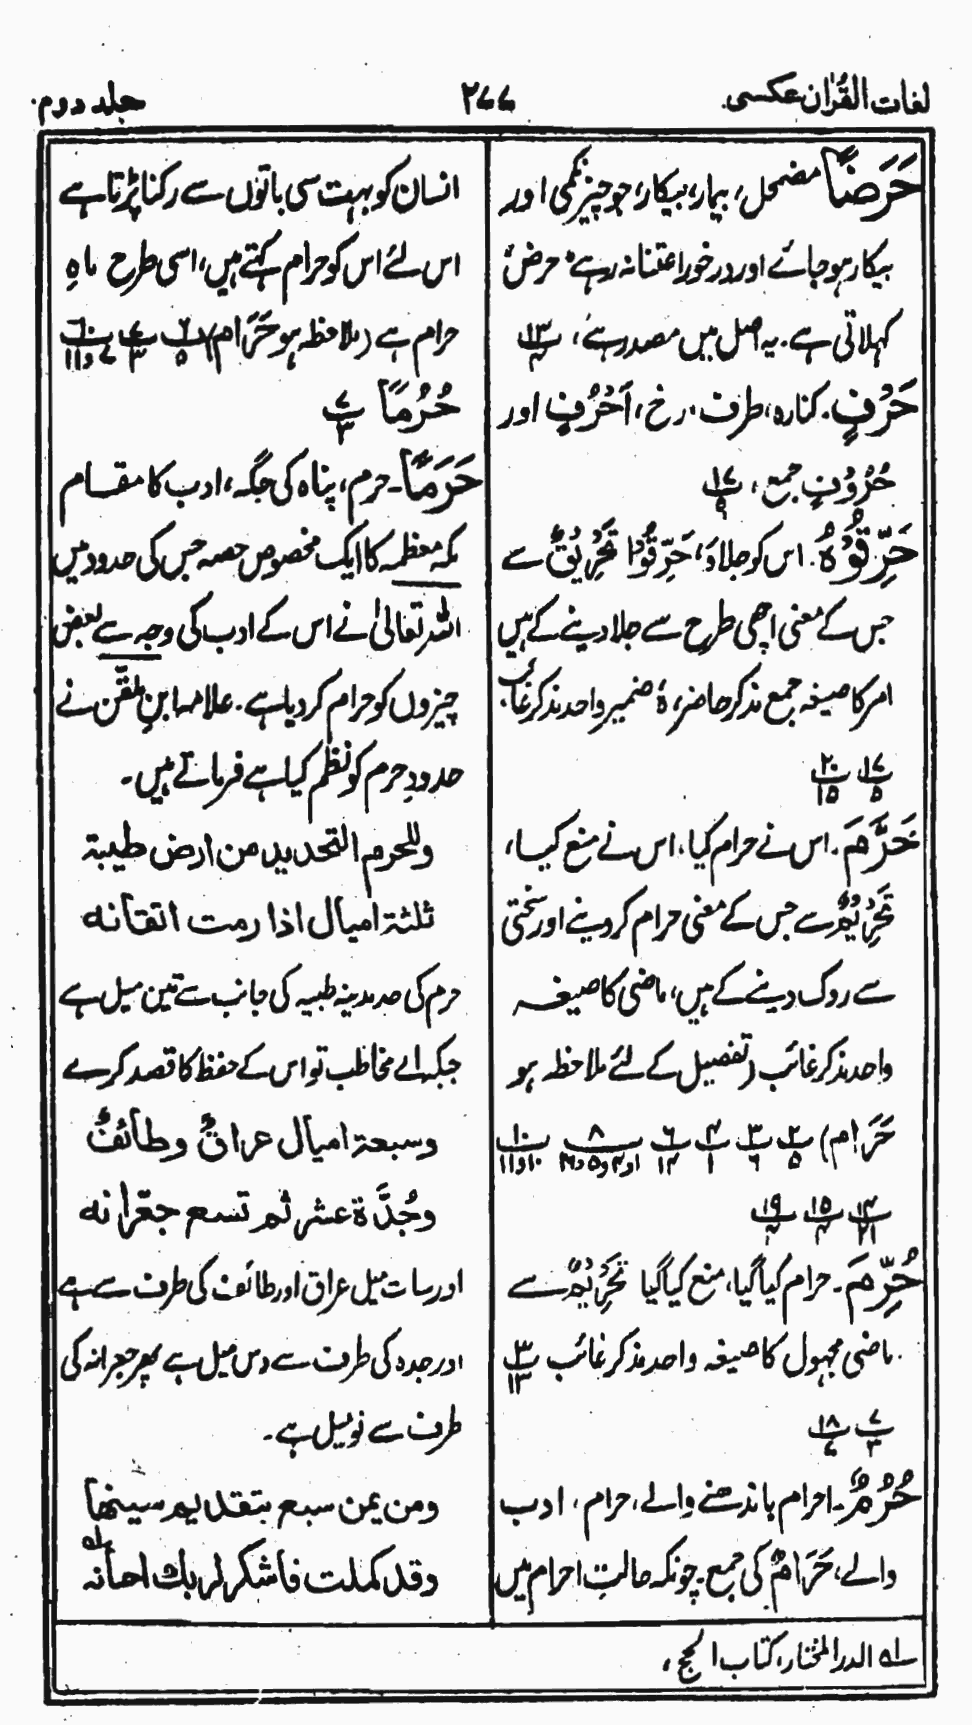 لغات القرآن عکسی
۲۷۷
جلد دوم
حَرَضًا مضمحل، بیمار، بیکار، جو چیز نکمی اور
بیکار ہو جائے اور در خور اعتنا نہ رہے حرض
کہلاتی ہے۔ یہ اصل میں مصدر ہے، ۱۳/۴
حَرْفٍ۔ کنارہ، طرف، رخ، اَحْرُفٍ اور
حُرُوْفٍ جمع، ۱۷/۹
حَرِّقُوْهُ۔ اس کو جلاؤ، حَرِّقُوْا تَحْرِیْقٌ سے
جس کے معنی اچھی طرح سے جلا دینے کے ہیں
امر کا صیغہ جمع مذکر حاضر، ہٗ ضمیر واحد مذکر غائب
۱۷/۵ ۲۰/۱۵
حَرَّمَ۔ اس نے حرام کیا، اس نے منع کیا،
تَحْرِیْمٌ سے جس کے معنی حرام کر دینے اور سختی
سے روک دینے کے ہیں، ماضی کا صیغہ
واحد مذکر غائب (تفصیل کے لئے ملاحظہ ہو
حَرَام) ۲/۵ ۳/۶ ۴/۱ ۶/۱۴ ۸/۴و۵و۶ ۱۰/۱۰و۱۱
۱۴/۲۱ ۱۵/۴ ۱۹/۴
حُرِّمَ۔ حرام کیا گیا، منع کیا گیا تَحْرِیْمٌ سے
ماضی مجہول کا صیغہ واحد مذکر غائب ۳/۱۳
۷/۳ ۱۸/۷
حُرُمٌ۔ احرام باندھنے والے، حرام، ادب
والے، حَرَامٌ کی جمع۔ چونکہ حالتِ احرام میں
انسان کو بہت سی باتوں سے رکنا پڑتا ہے
اس لئے اس کو حرام کہتے ہیں، اسی طرح ماہِ
حرام ہے (ملاحظہ ہو حَرَام) ۶/۵ ۷/۳ ۱۰/۷و۱۱
حُرُمًا ۷/۳
حَرَمًا۔ حرم، پناہ کی جگہ، ادب کا مقام
مکہ معظمہ کا ایک مخصوص حصہ جس کی حدود میں
اللہ تعالیٰ نے اس کے ادب کی وجہ سے بعض
چیزوں کو حرام کر دیا ہے۔ علامہ ابنِ ملقّن نے
حدودِ حرم کو نظم کیا ہے فرماتے ہیں۔
وللحرم التحدید من ارض طیبۃ
ثلثۃ امیال اذا رمت اتقانہ
حرم کی حد مدینہ طیبہ کی جانب سے تین میل ہے
جبکہ اے مخاطب تو اس کے حفظ کا قصد کرے
وسبعۃ امیال عراقٌ وطائفٌ
وجُدَّۃ عشر ثم تسع جعرّانہ
اور سات میل عراق اور طائف کی طرف سے ہے
اور جدہ کی طرف سے دس میل ہے پھر جعرانہ کی
طرف سے نو میل ہے۔
ومن یمن سبع بتقدیم سینھا
وقد کملت فاشکر لربک احسانہ ؎۱
؎۱ الدر المختار، کتاب الحج،